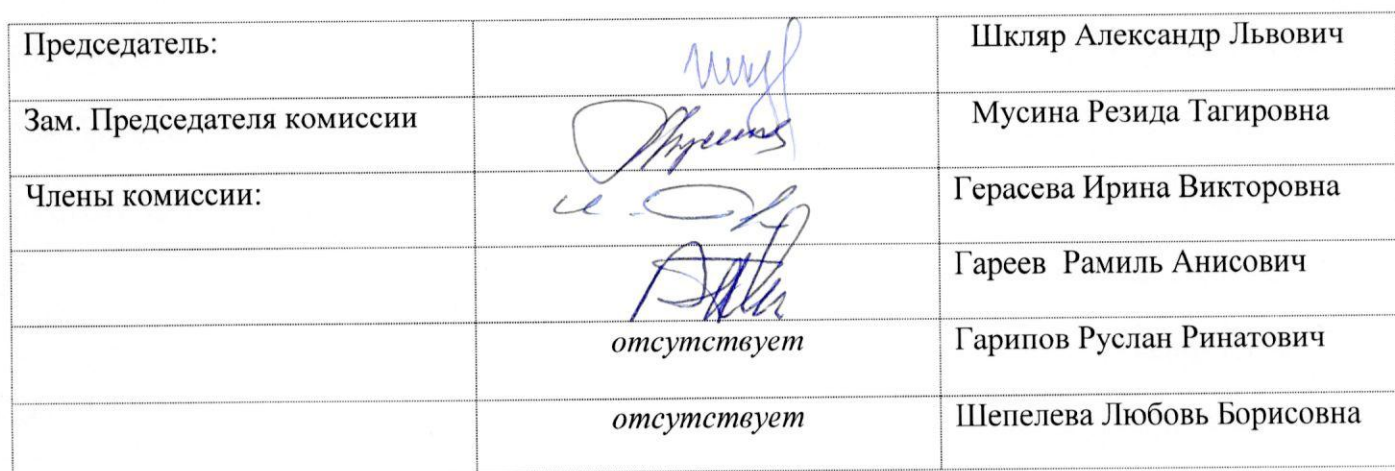 Председатель: Шкляр Александр Львович
Зам. Председателя комиссии Мусина Резида Тагировна
Члены комиссии: Герасева Ирина Викторовна
Гареев Рамиль Анисович
отсутствует Гарипов Руслан Ринатович
отсутствует Шепелева Любовь Борисовна